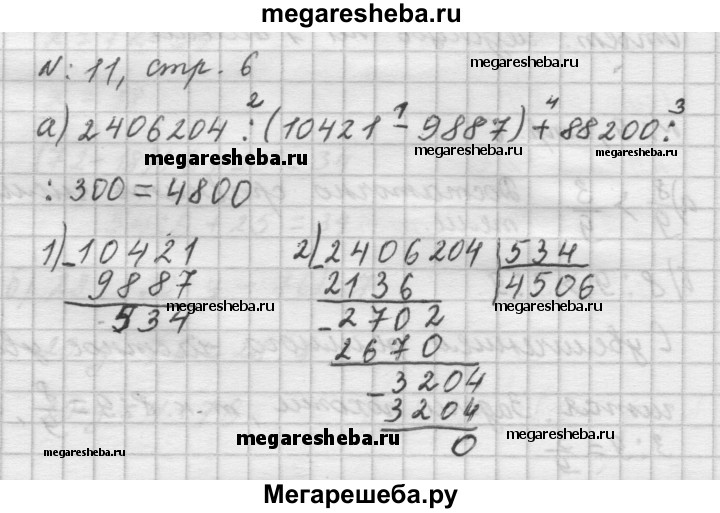 megaresheba.ru
N: 11, стр. 6
megaresheba.ru
а) 2406204 : (10421 - 9887) + 88200 :
2 1 4 3
megaresheba.ru
megaresheba.ru
megaresheba.ru
: 300 = 4800
1) -10421 2) -2406204 | 534
9887 2136 4506
534 -2702
megaresheba.ru
megaresheba.ru
2670
-3204
3204
megaresheba.ru
megaresheba.ru
0
megaresheba.ru
megaresheba.ru
Мегарешеба.ру